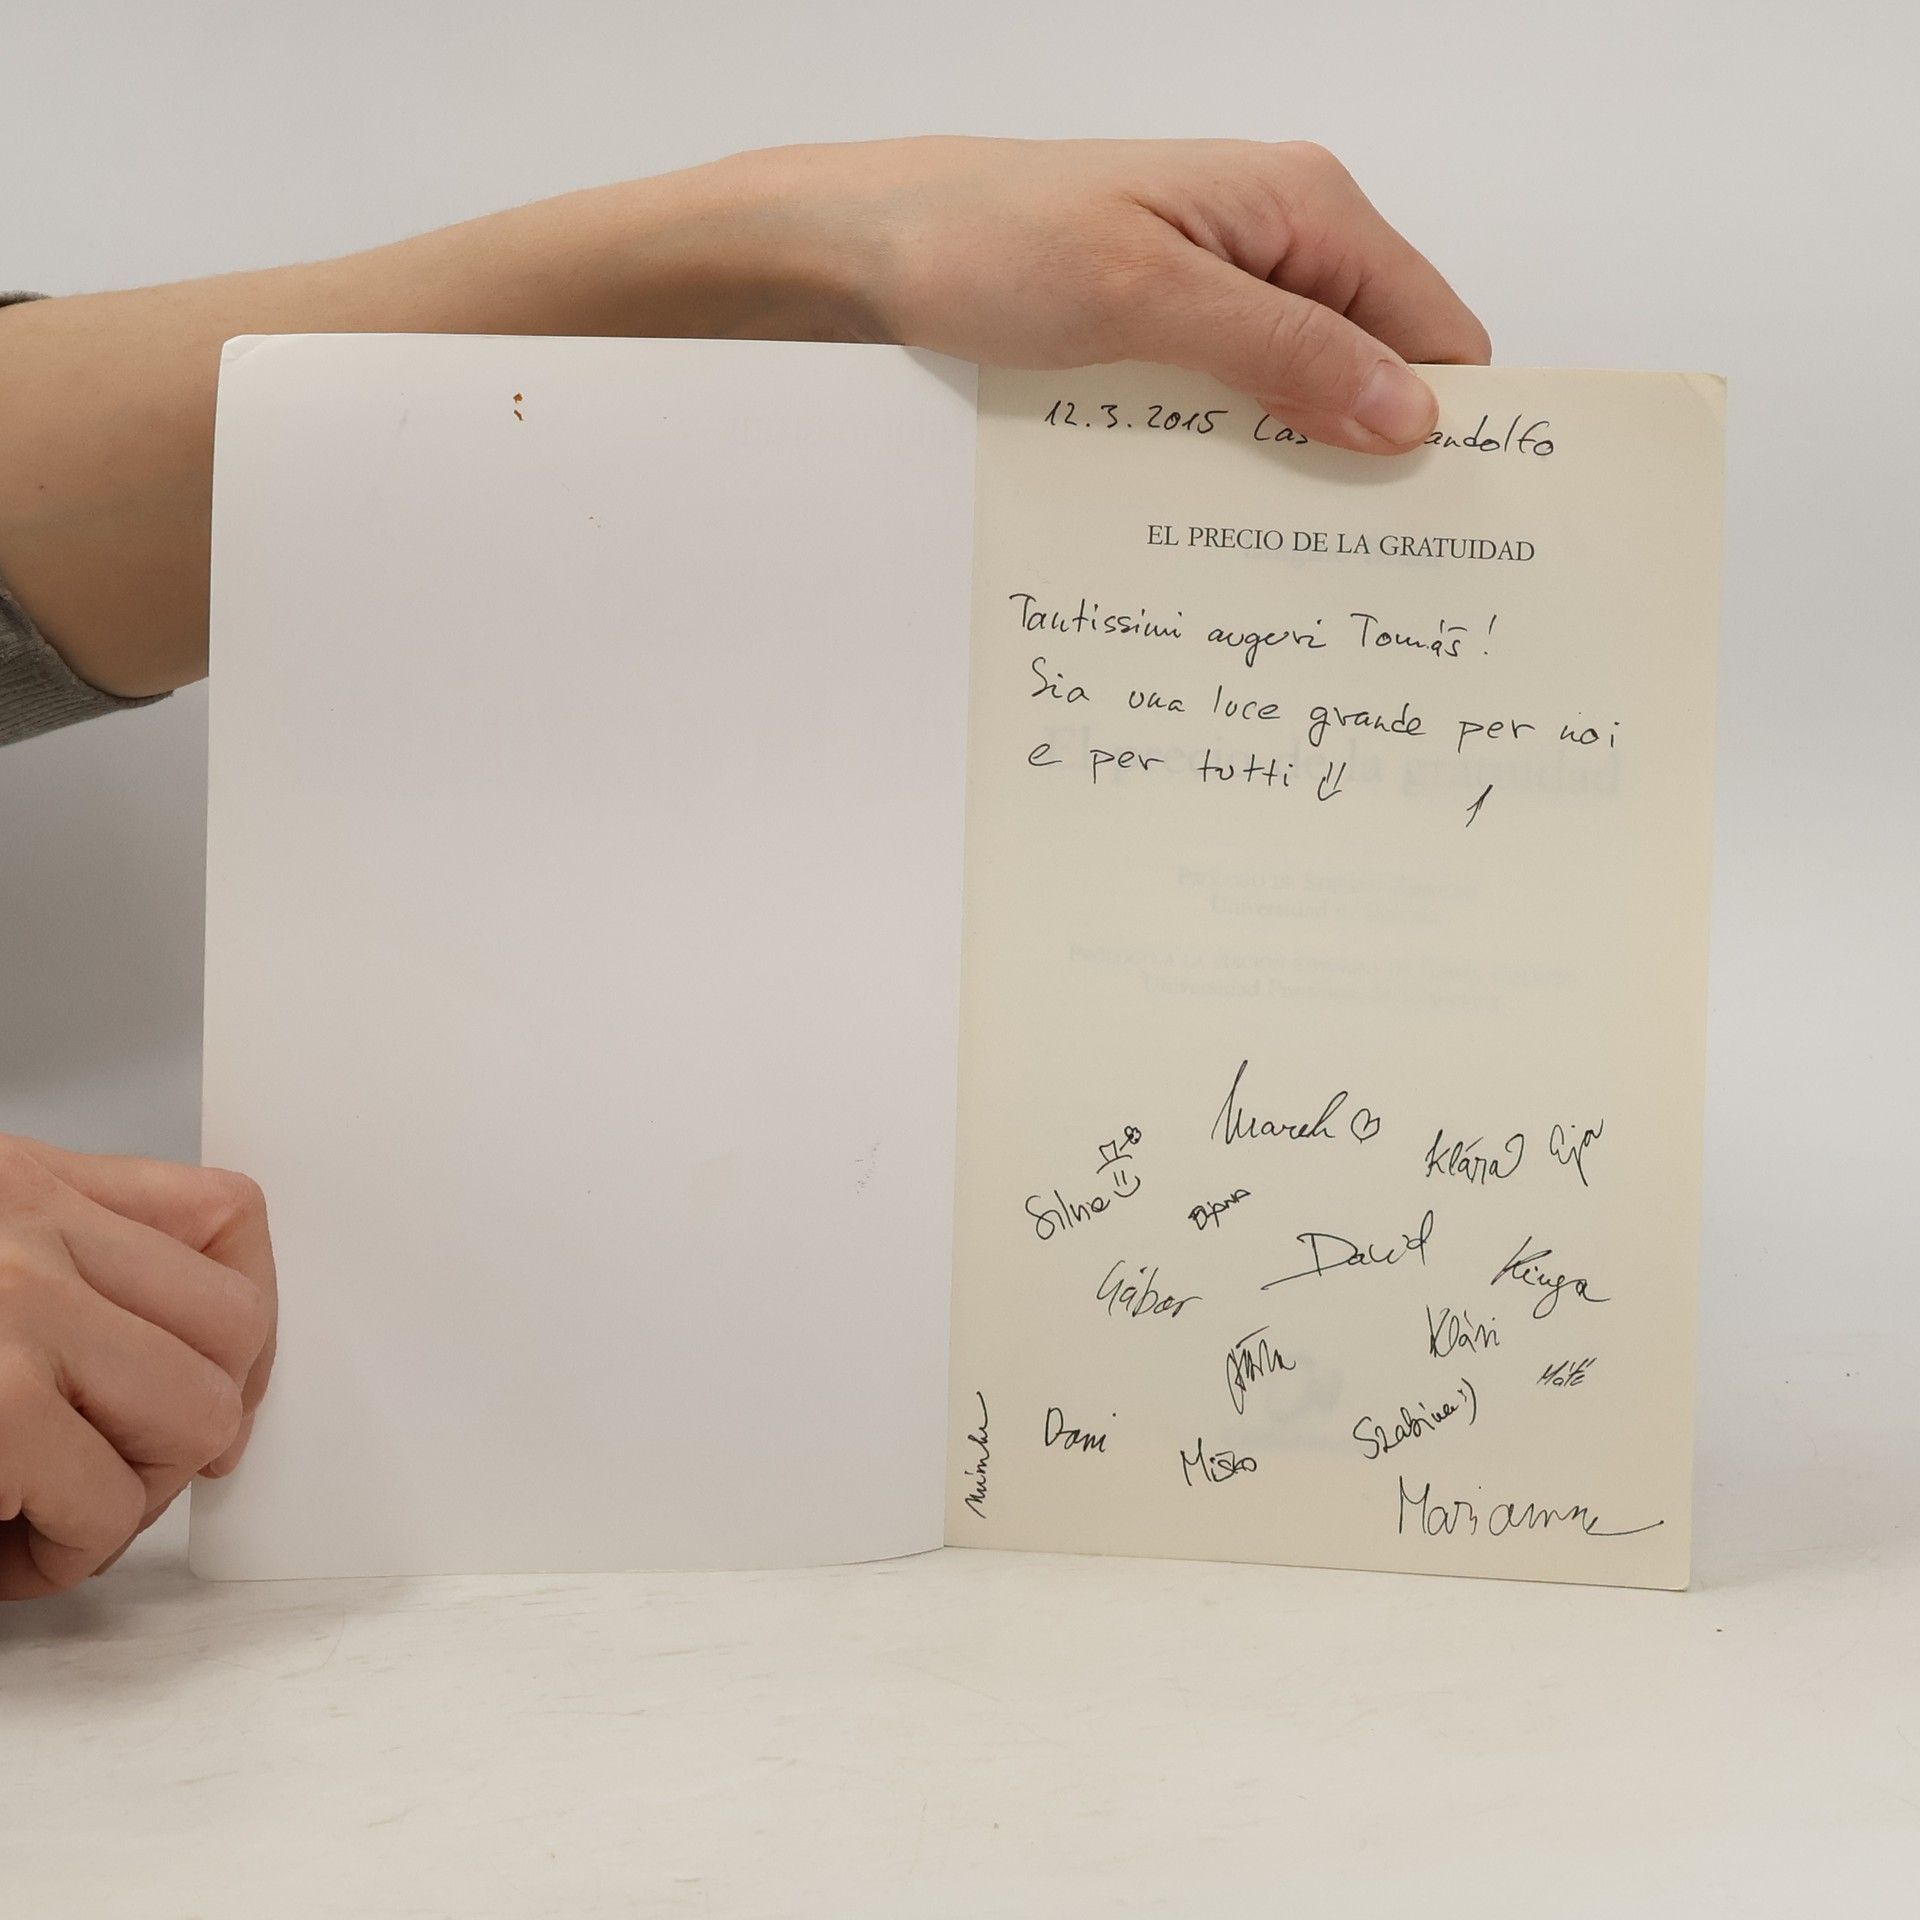 12.3.2015 Cas andolfo
EL PRECIO DE LA GRATUIDAD
Tantissimi auguri Tomáš!
Sia una luce grande per noi
e per tutti
El precio de la gratuidad
Marek
Klára
Silvie
David
Gábor
Kinga
Klári
Máté
Dani
Miško
Szabina :)
Marianne